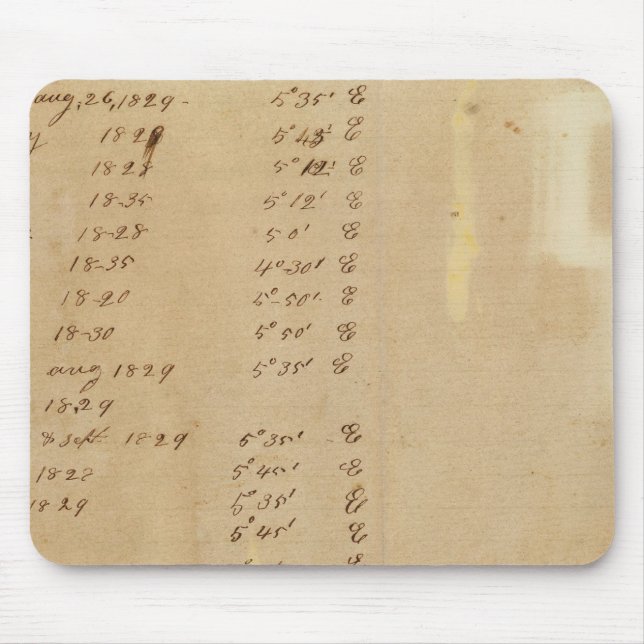 aug, 26, 1829- 5° 35' E
y 1829 5° 45' E
1828 5° 12' E
18-35 5° 12' E
18-28 5 0' E
18-35 4°-30' E
18-20 5°-50' E
18-30 5° 50' E
aug 1829 5° 35' E
18,29
& sept 1829 5° 35' E
1828 5° 45' E
1829 5° 35' E
5° 45' E
E